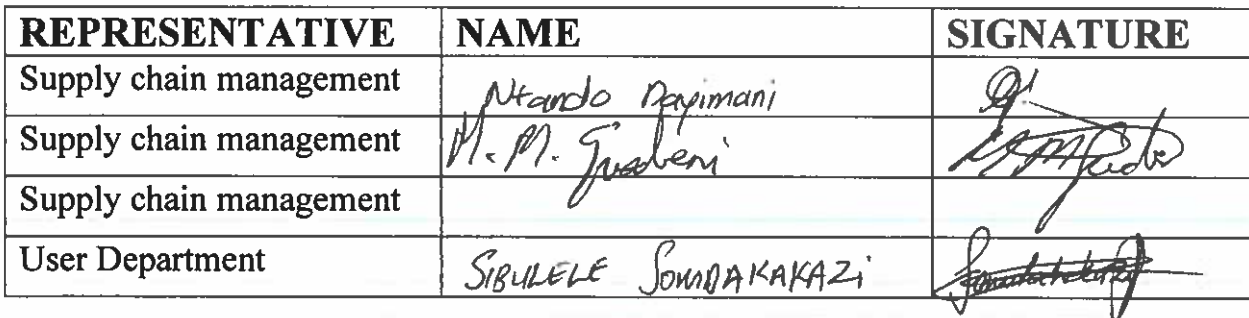 REPRESENTATIVE NAME SIGNATURE
Supply chain management Ntando Dayimani
Supply chain management M. M. Gusbeni
Supply chain management
User Department SIBULELE SOMDAKAKAZI